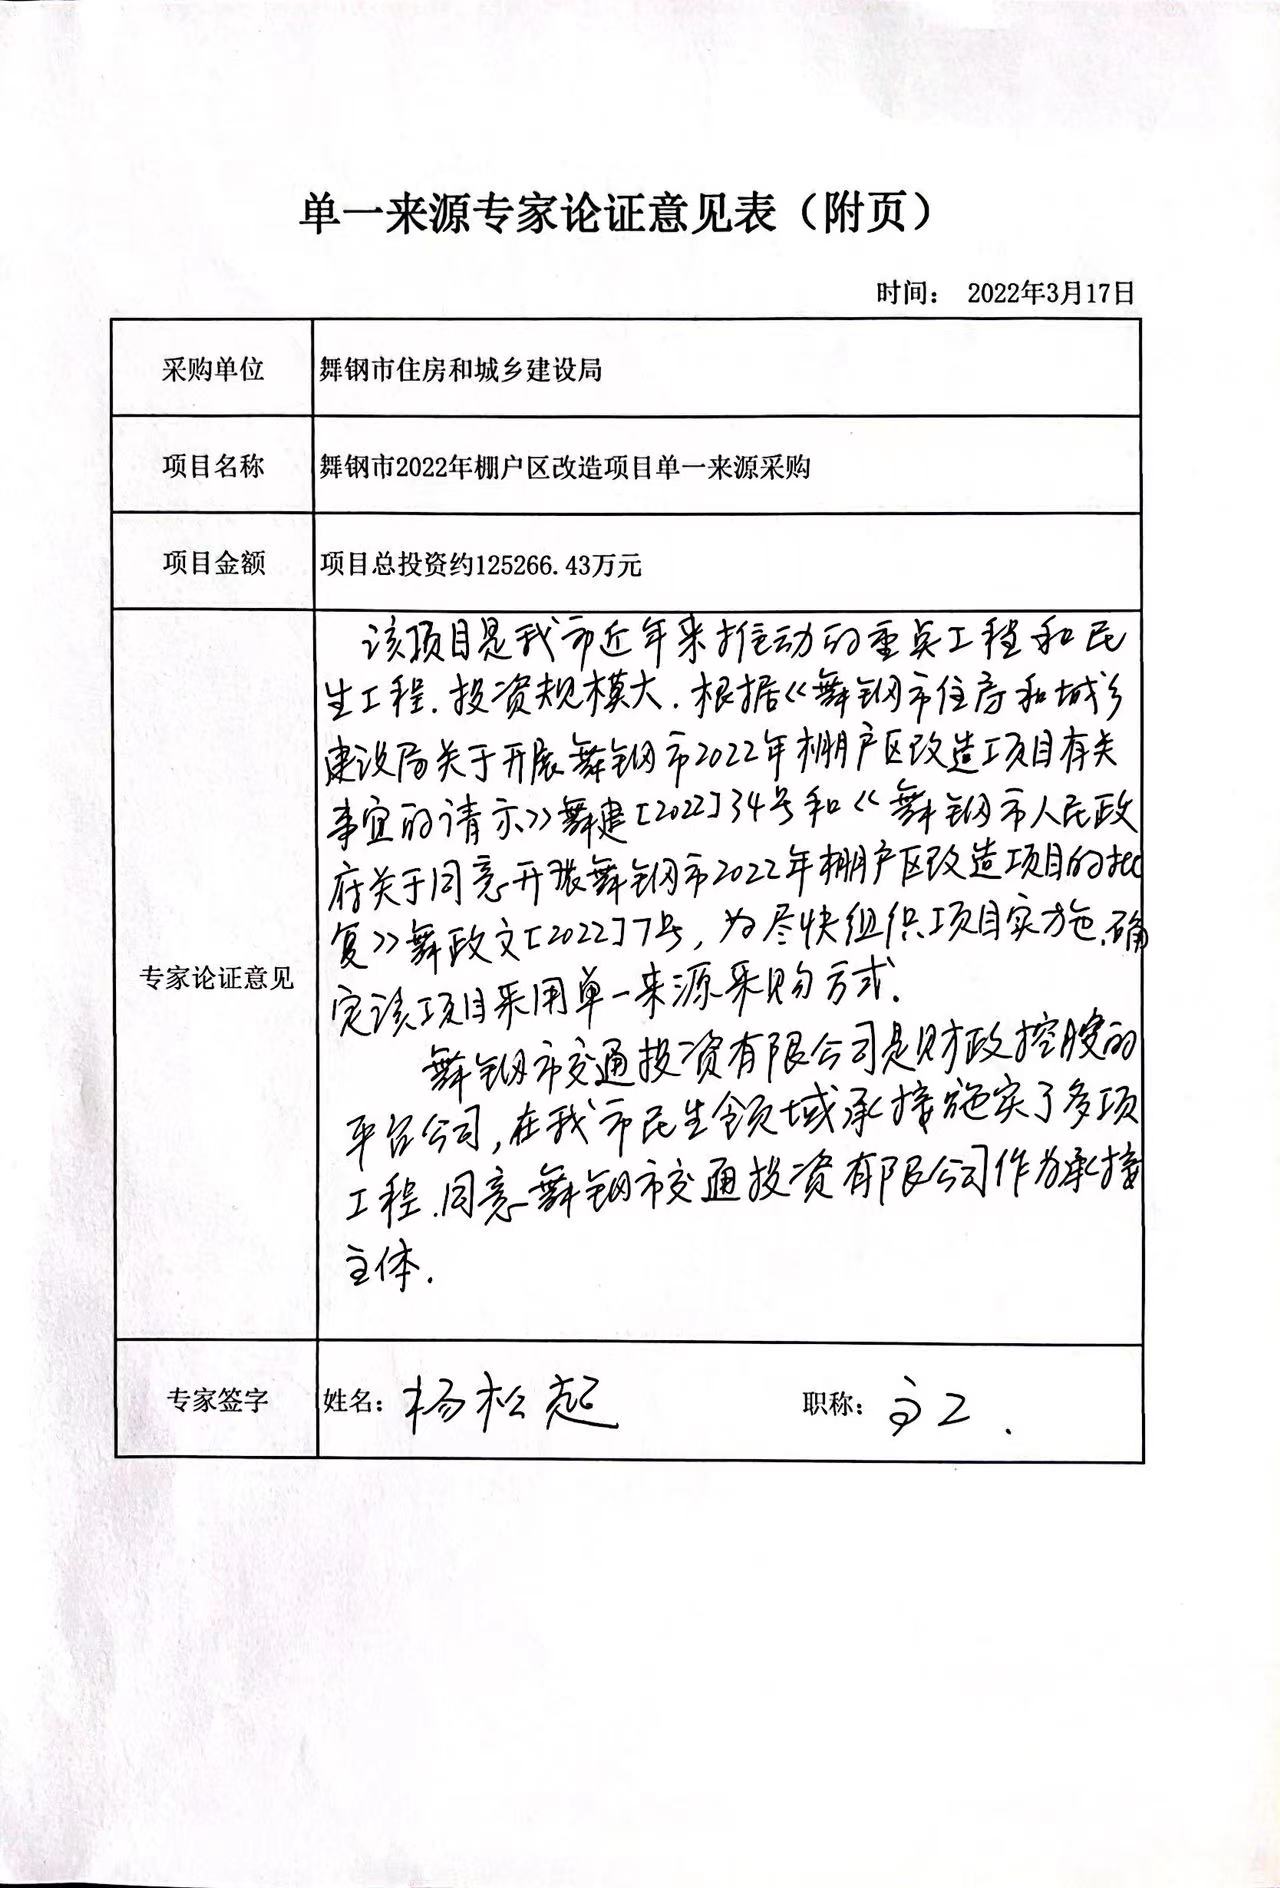 单一来源专家论证意见表（附页）
时间： 2022年3月17日
采购单位 舞钢市住房和城乡建设局
项目名称 舞钢市2022年棚户区改造项目单一来源采购
项目金额 项目总投资约125266.43万元
专家论证意见
该项目是我市近年来推动的重点工程和民
生工程.投资规模大.根据《舞钢市住房和城乡
建设局关于开展舞钢市2022年棚户区改造项目有关
事宜的请示》舞建[2022]34号和《舞钢市人民政
府关于同意开展舞钢市2022年棚户区改造项目的批
复》舞政文[2022]7号,为尽快组织项目实施.确
定该项目采用单一来源采购方式.
舞钢市交通投资有限公司是财政控股的
平台公司,在我市民生领域承接施实了多项
工程.同意舞钢市交通投资有限公司作为承接
主体.
专家签字 姓名：杨松起 职称：高工.